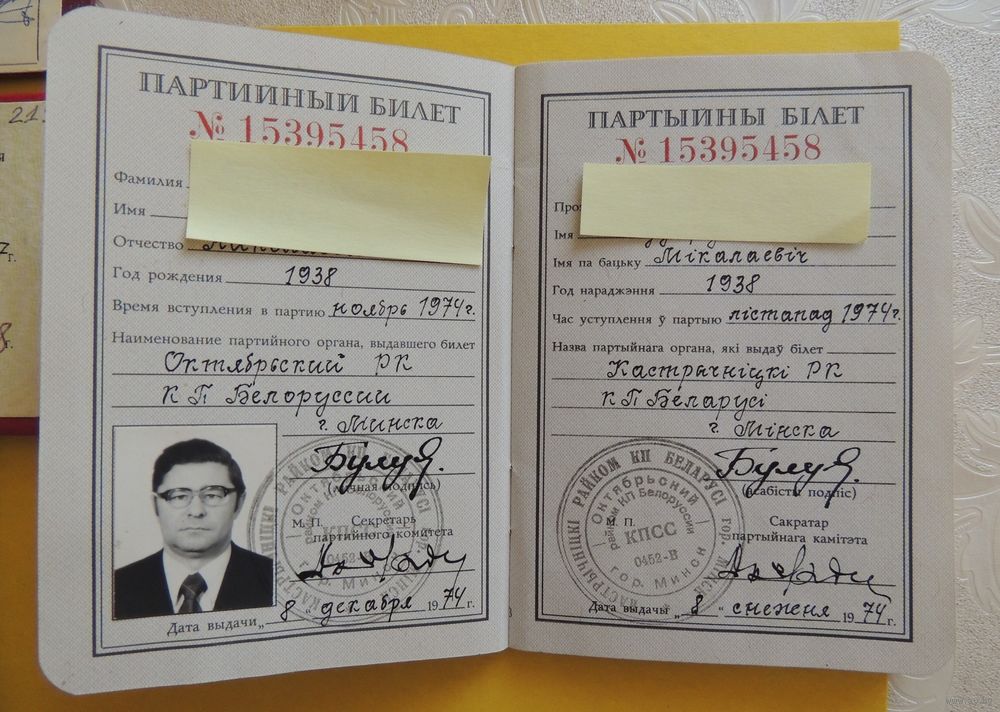 ПАРТИЙНЫЙ БИЛЕТ
№ 15395458
Фамилия
Имя
Отчество
Год рождения 1938
Время вступления в партию ноябрь 1974 г.
Наименование партийного органа, выдавшего билет
Октябрьский РК
КП Белоруссии
г. Минска
(личная подпись)
М. П. Секретарь
партийного комитета
Дата выдачи „ 8 " декабря 1974 г.
ПАРТЫЙНЫ БІЛЕТ
№ 15395458
Імя
Імя па бацьку Мікалаевіч
Год нараджэння 1938
Час уступлення ў партыю лістапад 1974 г.
Назва партыйнага органа, які выдаў білет
Кастрычніцкі РК
КП Беларусі
г. Мінска
(асабісты подпіс)
М. П. Сакратар
партыйнага камітэта
Дата выдачы „ 8 " снежня 1974 г.
КАСТРЫЧНІЦКІ РАЙКОМ КП БЕЛАРУСІ гор. МІНСК
Октябрьский
райком КП Белоруссии
КПСС
0452-В
гор. Минск
21.